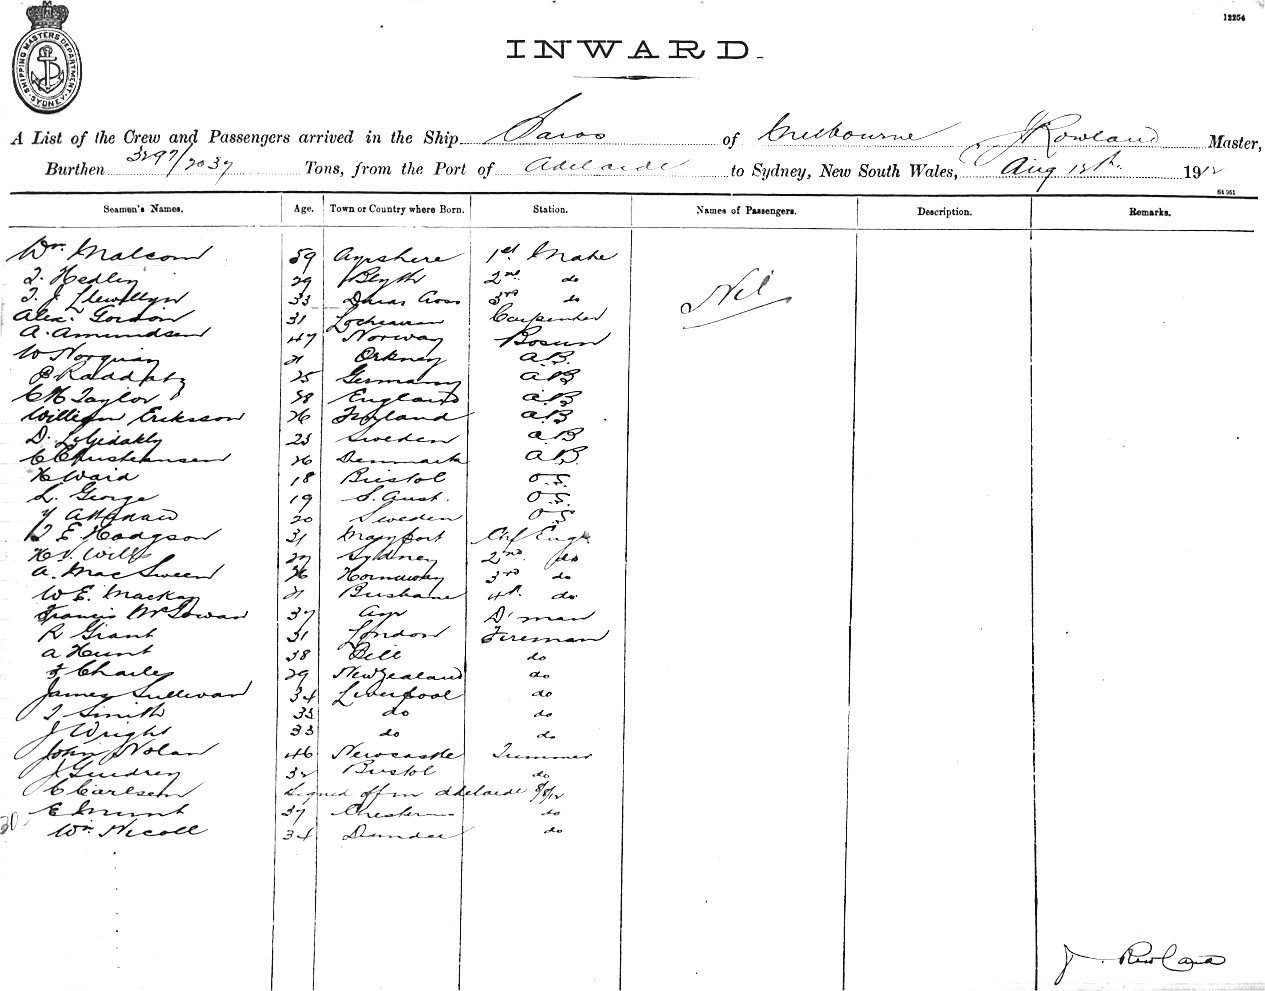 12254
SHIPPING MASTERS DEPARTMENT. SYDNEY.
INWARD.
A List of the Crew and Passengers arrived in the Ship Saros of Melbourne J Rowland Master,
Burthen 3297/2037 Tons, from the Port of Adelaide to Sydney, New South Wales, Aug 12th 1912
St 951
Seamen's Names. Age. Town or Country where Born. Station. Names of Passengers. Description. Remarks.
Wm. Malcom 59 Ayrshire 1st Mate
T. Hedley 29 Blyth 2nd do
Nil
T. J. Llewellyn 33 3rd do
Alex. Gordon 31 Carpenter
A. Amundsen 47 Norway Bosun
W Norquay 21 Orkney A.B.
P Raddatz 25 Germany A.B
C H Taylor 38 England A.B
William Eriksson 26 Finland A.B
D. 23 Sweden A.B
C Christiansen 26 Denmark A.B.
H Ward 18 Bristol O.S.
L. George 19 S. Aust. O.S.
20 Sweden O.S
E Hodgson 31 Maryport Chf Engr
H. V. Wills 27 Sydney 2nd do
A. MacSween 26 3rd do
W E. Mackay 21 Brisbane 4th do
Francis McGowan 37 Ayr D'man
R Grant 31 London Fireman
A Hunt 38 do
F Charles 29 New Zealand do
James Sullivan 34 Liverpool do
T Smith 33 do do
J Wright 33 do do
John Nolan 46 Newcastle Trimmer
J Guidrey 32 Bristol do
C Carlsen Signed off in Adelaide 8/8/12
E Munt 37 Chester do
30 Wm. Nicoll 34 Dundee do
J. Rowland